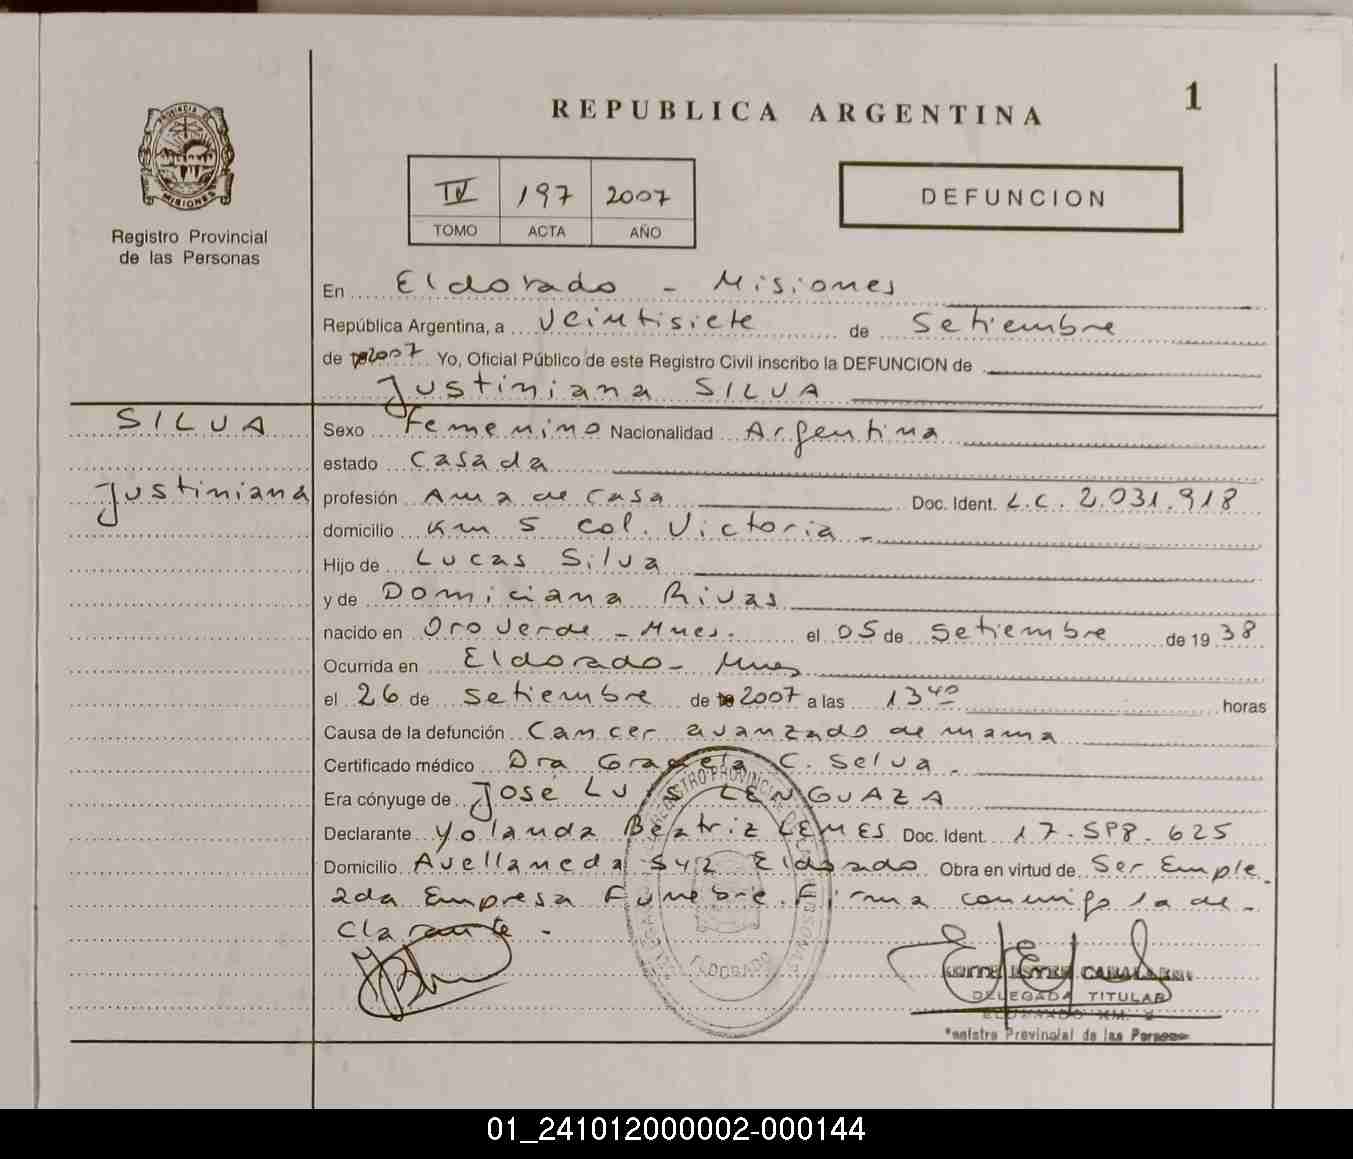 1
REPUBLICA ARGENTINA
PROVINCIA DE
MISIONES
Registro Provincial
de las Personas
IV 197 2007
TOMO ACTA AÑO
DEFUNCION
En Eldorado - Misiones
República Argentina, a Veintisiete de Setiembre
de 2007 Yo, Oficial Público de este Registro Civil inscribo la DEFUNCION de
Justiniana SILVA
SILVA
Justiniana
Sexo Femenino Nacionalidad Argentina
estado Casada
profesión Ama de Casa Doc. Ident. L.C. 2.031.918
domicilio Km 5 Col. Victoria -
Hijo de Lucas Silva
y de Domiciana Rivas
nacido en Oro Verde - Mnes. el 05 de Setiembre de 19 38
Ocurrida en Eldorado - Mnes
el 26 de Setiembre de 2007 a las 13 40 horas
Causa de la defunción Cancer avanzado de mama
Certificado médico Dra Graciela C. Selva.
Era cónyuge de José Luis LENGUAZA
Declarante Yolanda Beatriz LEMES Doc. Ident. 17.598.625
Domicilio Avellaneda 542 Eldorado Obra en virtud de Ser Emple
ada Empresa Funebre. Firma conmigo la de-
clarante -
REGISTRO PROVINCIAL DE LAS PERSONAS
ELDORADO
DELEGADA TITULAR
ELDORADO KM.
Registro Provincial de las Personas
01_241012000002-000144